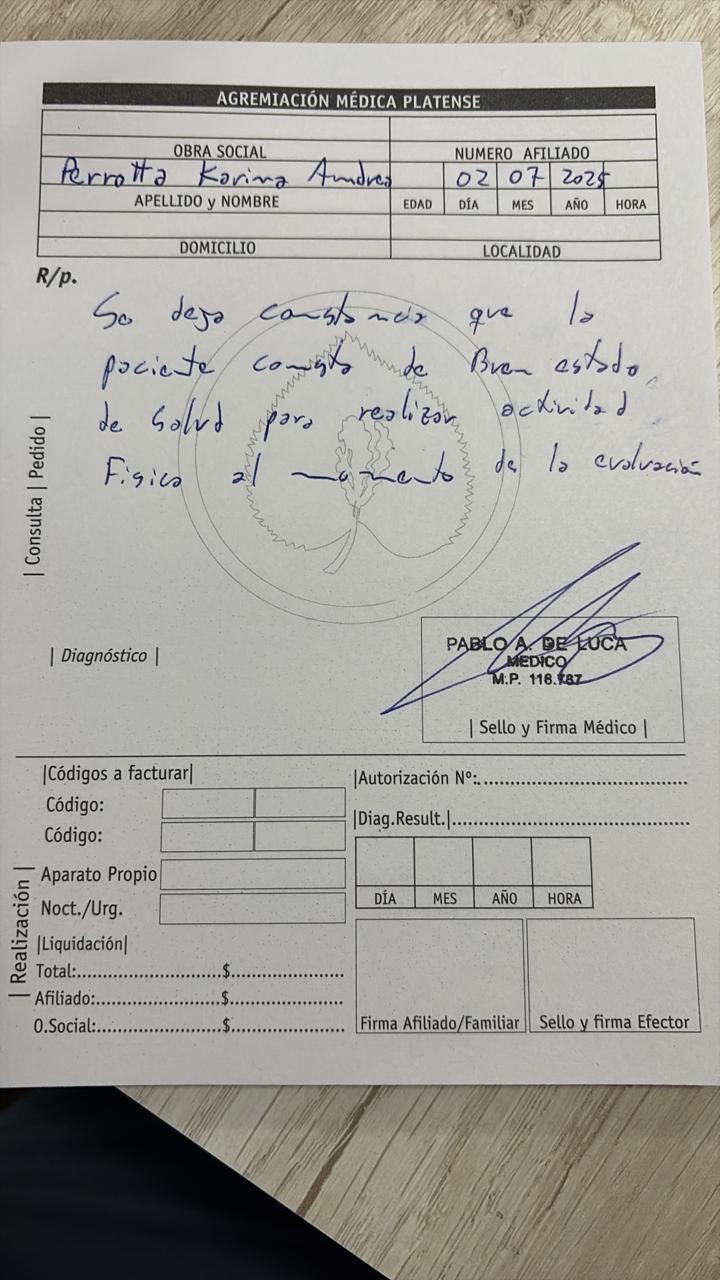 AGREMIACIÓN MÉDICA PLATENSE
OBRA SOCIAL NUMERO AFILIADO
Perrotta Karina Andrea 02 07 2025
APELLIDO y NOMBRE EDAD DÍA MES AÑO HORA
DOMICILIO LOCALIDAD
R/p.
Se deja constancia que la
paciente consta de Buen estado
de salud para realizar actividad
Fisica al momento de la evaluación
| Consulta | Pedido |
| Diagnóstico |
PABLO A. DE LUCA
MEDICO
M.P. 118.787
| Sello y Firma Médico |
|Códigos a facturar|
Código:
Código:
Aparato Propio
Noct./Urg.
| Realización |
|Liquidación|
Total:....................$...............
Afiliado:....................$...............
O.Social:....................$...............
|Autorización Nº:..............................
|Diag.Result.|..............................
DÍA MES AÑO HORA
Firma Afiliado/Familiar Sello y firma Efector